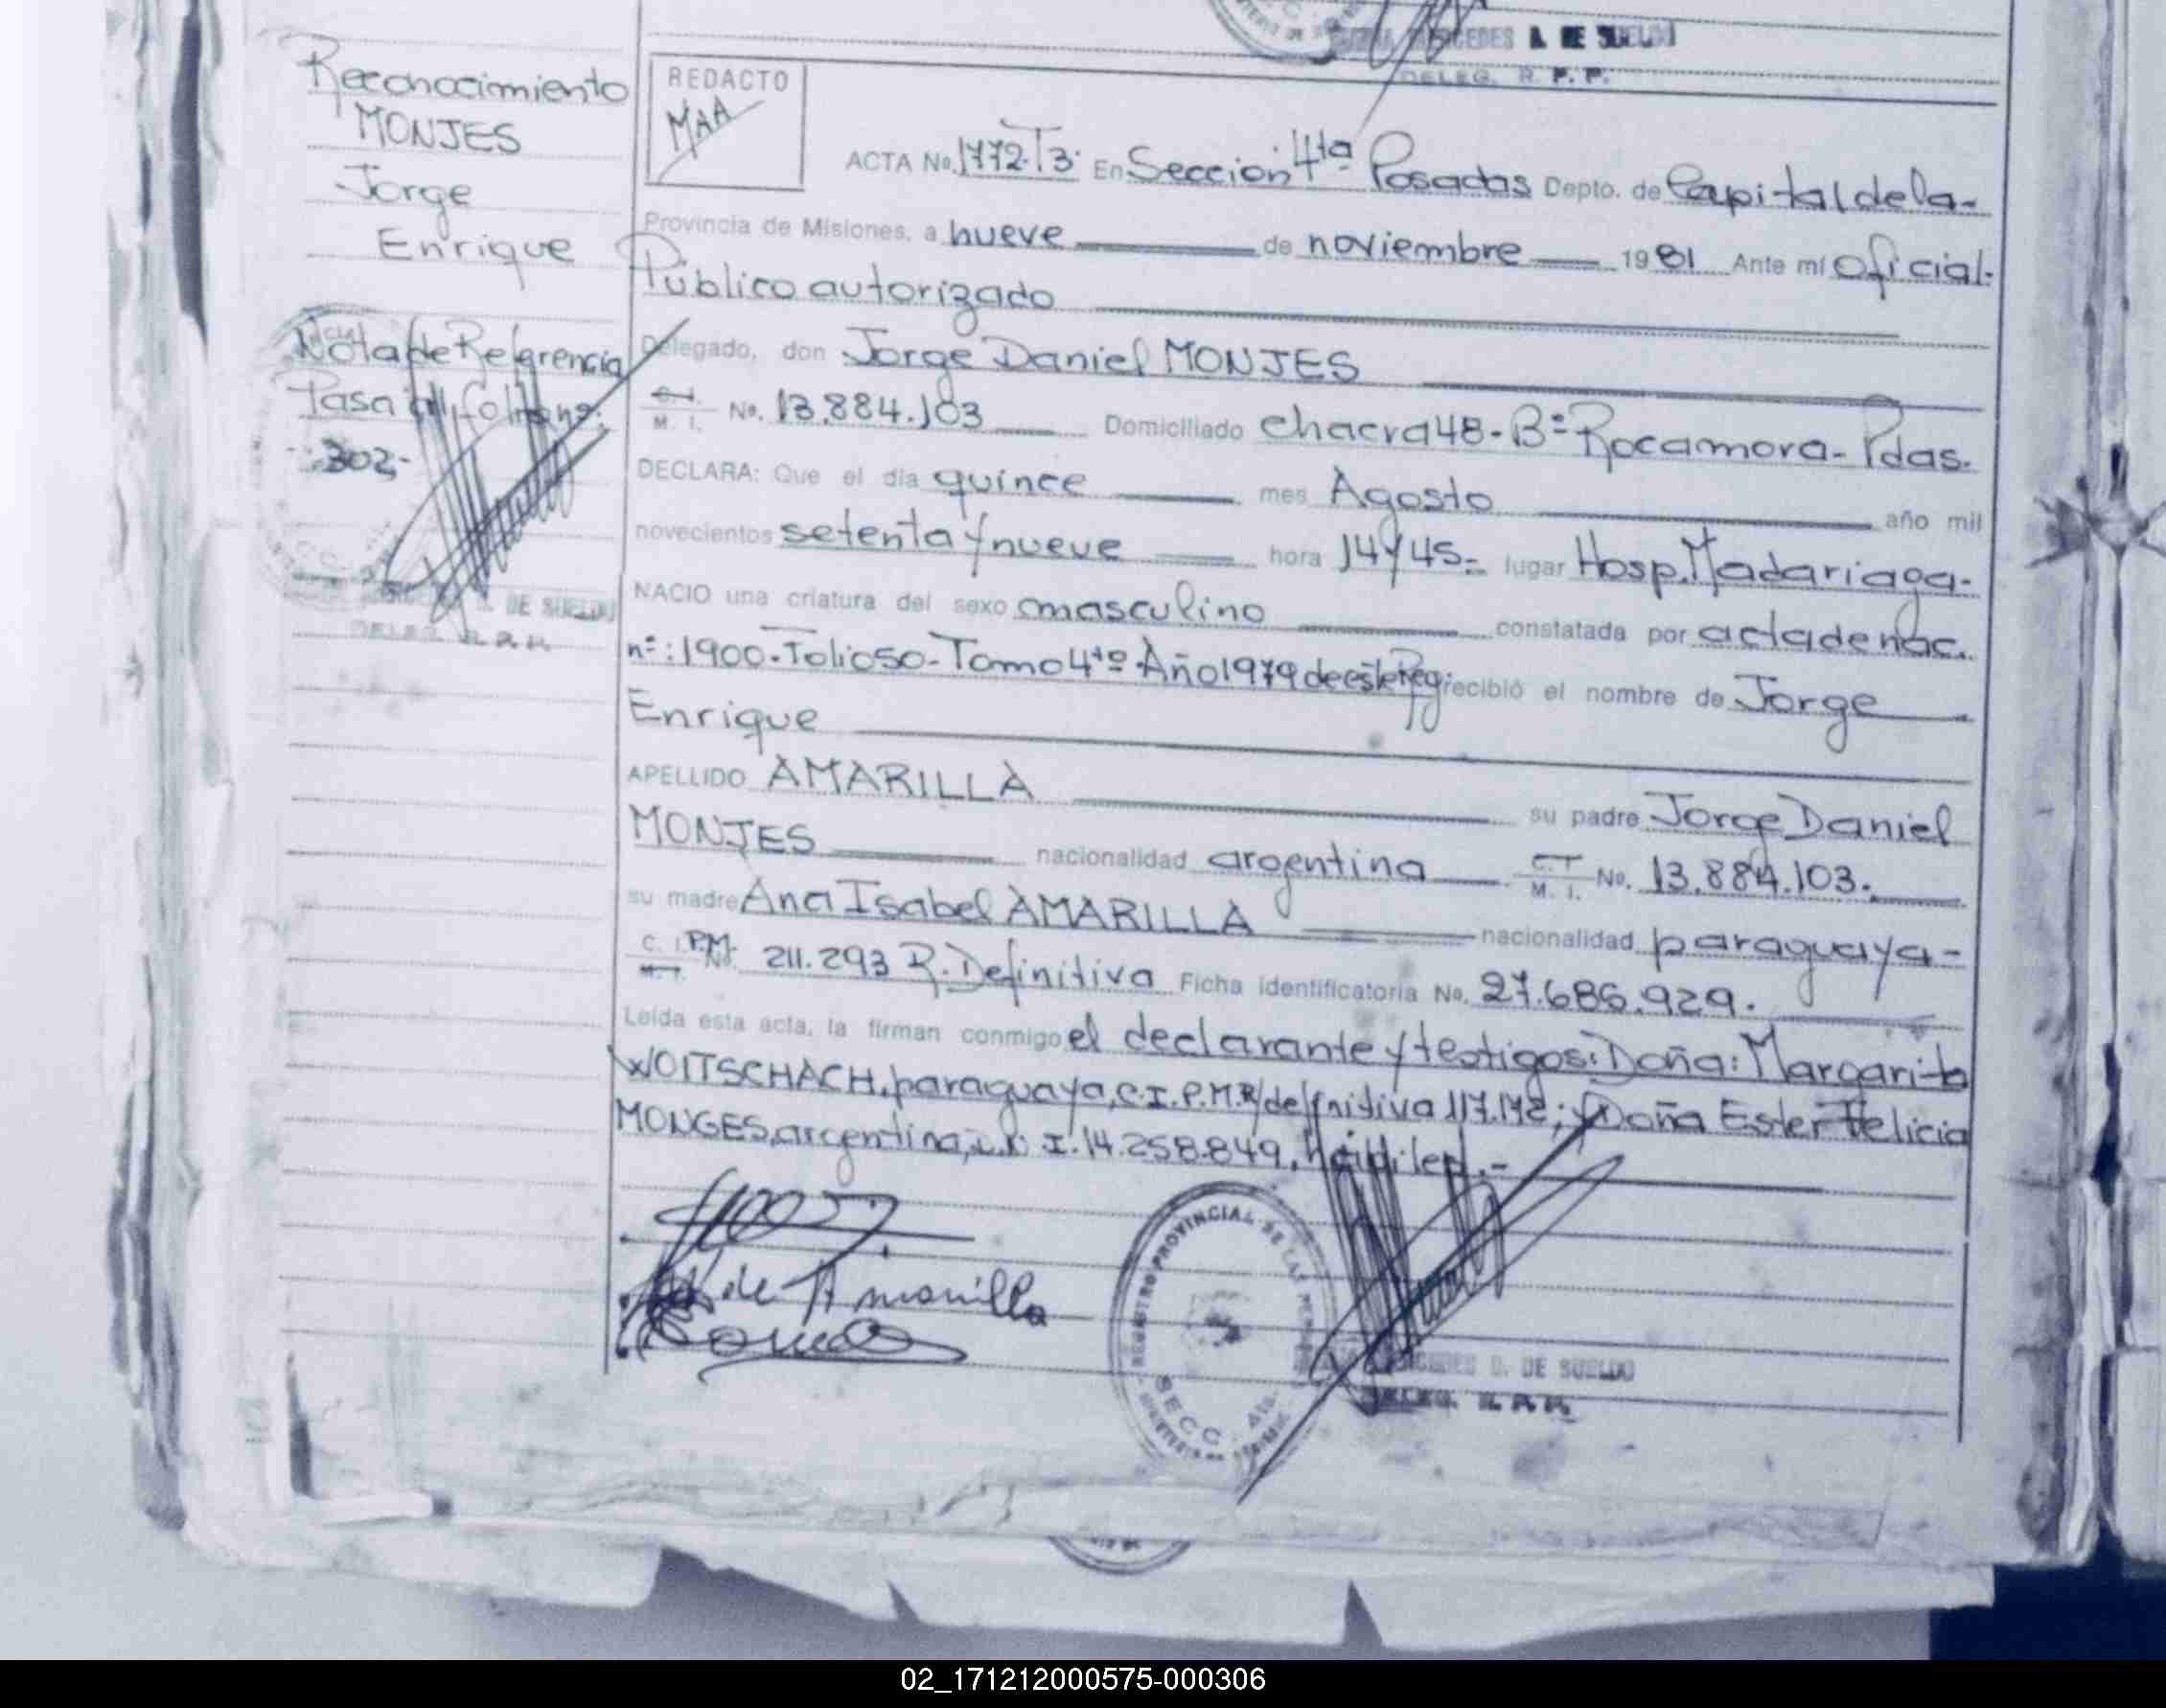 MERCEDES D. DE SUELDO
DELEG. R. P. P.
Reconocimiento
MONJES
Jorge
Enrique
Nota de Referencia
Pasa al folio nº:
302-
DE SUELDO
REDACTO
MAA
ACTA No. 1772.T3. En Sección 4ta Posadas Depto. de Capital de la-
Provincia de Misiones, a nueve de noviembre 1981 Ante mí Oficial.
Público autorizado
Delegado, don Jorge Daniel MONJES
C.I. M. I. No. 13.884.103 Domiciliado chacra 48-Bº Rocamora-Pdas.
DECLARA: Que el día quince mes Agosto año mil
novecientos setenta y nueve hora 14 y 45= lugar Hosp. Madariaga-
NACIO una criatura del sexo masculino constatada por acta de nac.
nº: 1900-Folio 50-Tomo 4to Año 1979 de este Reg. recibió el nombre de Jorge
Enrique
APELLIDO AMARILLA su padre Jorge Daniel
MONJES nacionalidad argentina C.I. M. I. No. 13.884.103.
su madre Ana Isabel AMARILLA nacionalidad paraguaya-
C. I. P.M. No. 211.293 R. Definitiva Ficha identificatoria No. 27.686.929.
Leída esta acta, la firman conmigo el declarante y testigos: Doña: Margarita
WOITSCHACH, paraguaya, C.I.P.M.R/definitiva 117.172; y Doña Ester Felicia
MONGES, argentina, D.N.I. 14.258.849, hábiles.-
de Amarilla
REGISTRO PROVINCIAL DE LAS PERSONAS
SECC. 4ta.
MERCEDES D. DE SUELDO
02_171212000575-000306